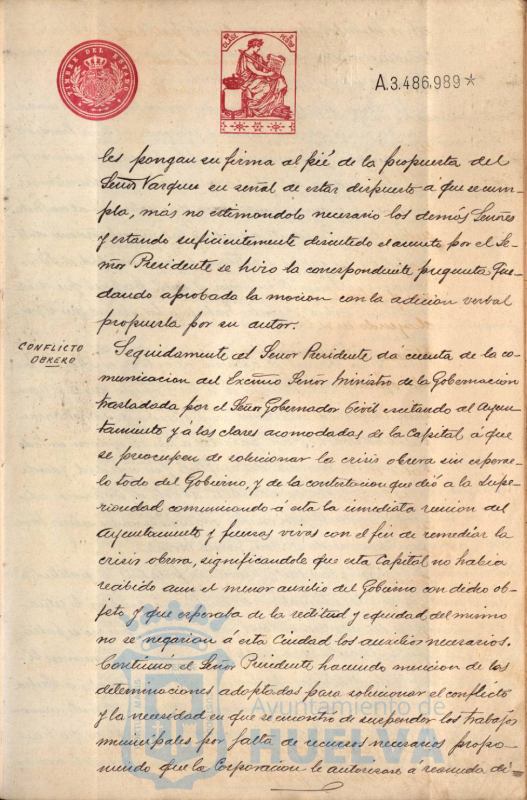 TIMBRE DEL ESTADO
CLASE
A.3.486,989*
les pongan su firma al pié de la propuesta del
Señor Vazquez en señal de estar dispuesto á que se cum-
pla, más no estimandolo necesario los demás Señores
y estando suficientemente discutido el asunto por el Se-
ñor Presidente se hizo la correspondiente pregunta que-
dando aprobada la mocion con la adicion verbal
propuesta por su autor.
CONFLICTO
OBRERO
Seguidamente el Señor Presidente dá cuenta de la co-
municacion del Excmo Señor Ministro de la Gobernacion
trasladada por el Señor Gobernador Civil excitando al Ayun-
tamiento y á las clases acomodadas de la Capital á que
se preocupen de solucionar la crisis obrera sin esperar-
lo todo del Gobierno, y de la contestacion que dió a la Supe-
rioridad comunicando á esta la inmediata reunion del
Ayuntamiento y fuerzas vivas con el fin de remediar la
crisis obrera, significandole que esta Capital no habia
recibido aun el menor auxilio del Gobierno con dicho ob-
jeto y que esperaba de la rectitud y equidad del mismo
no se negarian á esta Ciudad los auxilios necesarios.
Continuó el Señor Presidente haciendo mencion de las
determinaciones adoptadas para solucionar el conflicto
y la necesidad en que se encontró de suspender los trabajos
municipales por falta de recursos necesarios propo-
niendo que la Corporacion le autorizase á reanudar di-
Ayuntamiento de
HUELVA